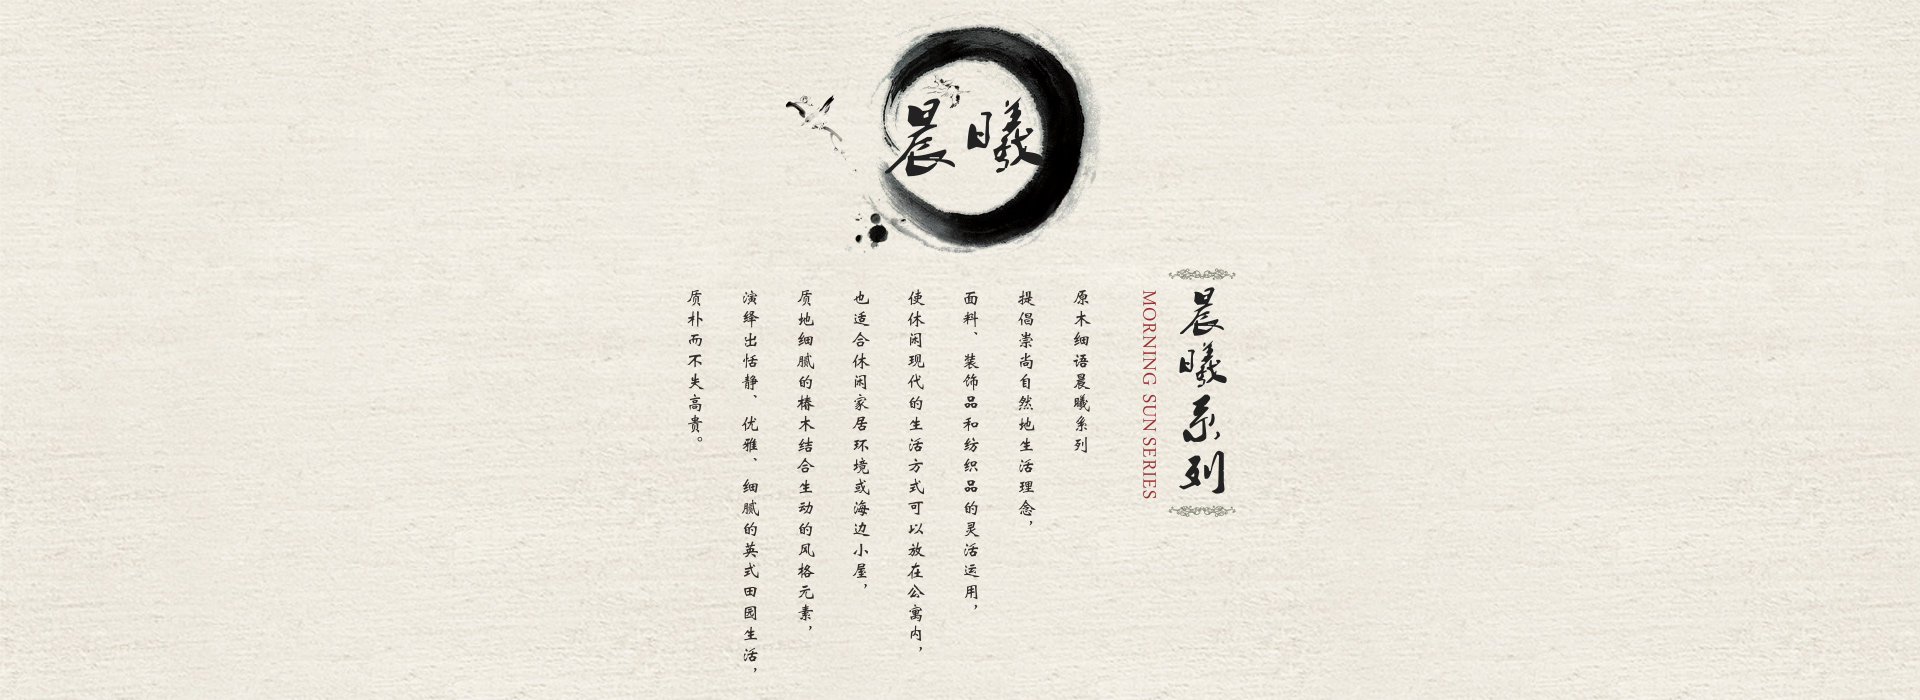 晨曦
晨曦系列
MORNING SUN SERIES
原木细语晨曦系列
提倡崇尚自然地生活理念，
面料、装饰品和纺织品的灵活运用，
使休闲现代的生活方式可以放在公寓内，
也适合休闲家居环境或海边小屋，
质地细腻的椿木结合生动的风格元素，
演绎出恬静、优雅、细腻的英式田园生活，
质朴而不失高贵。